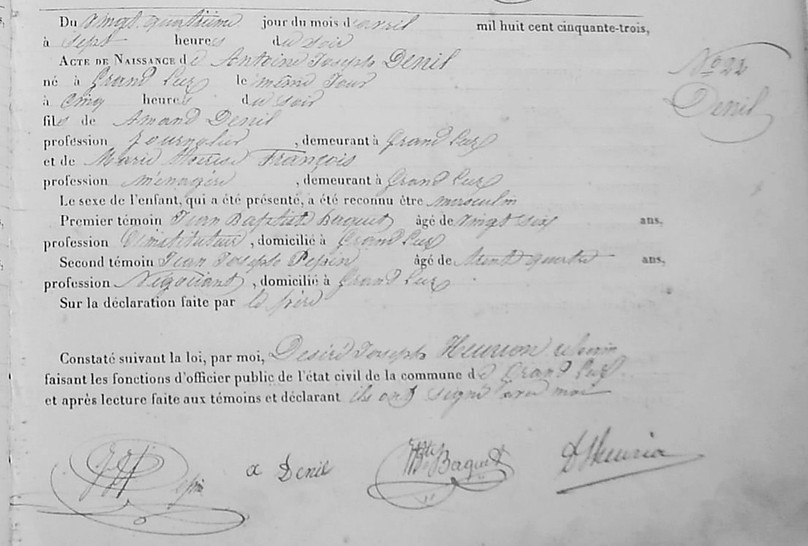 Du vingt quatrième jour du mois d'avril mil huit cent cinquante-trois,
à sept heures du soir
ACTE DE NAISSANCE de Antoine Joseph Denil
né à Grand Leez le même jour
à cinq heures du soir
fils de Amand Denil
profession Journalier , demeurant à Grand Leez
et de Marie Thérèse François
profession ménagère , demeurant à Grand Leez
Le sexe de l'enfant, qui a été présenté, a été reconnu être masculin
Premier témoin Jean Baptiste Baquet âgé de vingt six ans,
profession instituteur , domicilié à Grand Leez
Second témoin Jean Joseph âgé de trente quatre ans,
profession Négociant , domicilié à Grand Leez
Sur la déclaration faite par le père
Constaté suivant la loi, par moi, Desiré Joseph
faisant les fonctions d'officier public de l'état civil de la commune de Grand Leez
et après lecture faite aux témoins et déclarant ils ont signé avec moi
No 22
Denil
a Denil
Baquet